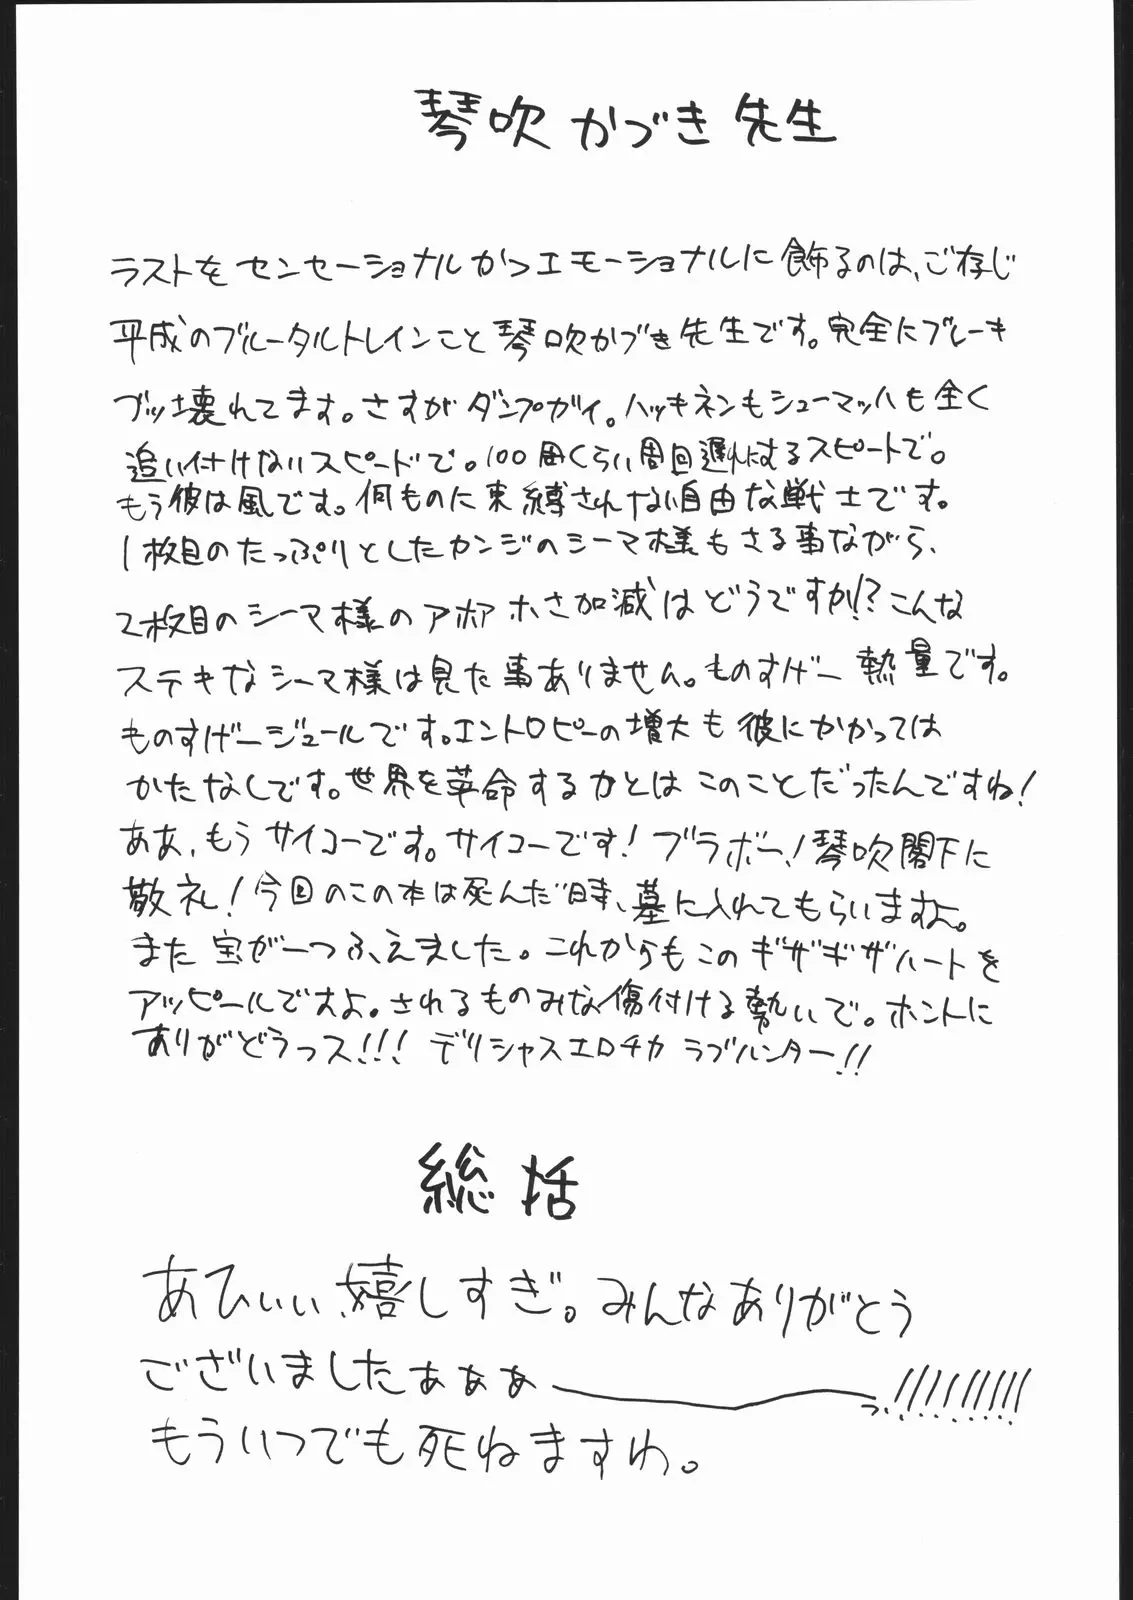 琴吹かづき先生
ラストをセンセーショナルかつエモーショナルに飾るのは、ご存じ
平成のブルータルトレインこと琴吹かづき先生です。完全にブレーキ
ブッ壊れてます。さすがダンプガイ。ハッキネンもシューマッハも全く
追い付けないスピードで。100周くらい周回遅れにするスピートで。
もう彼は風です。何ものに束縛されない自由な戦士です。
1枚目のたっぷりとしたカンジのシーマ様もさる事ながら、
2枚目のシーマ様のアホアホさ加減はどうですか!?こんな
ステキなシーマ様は見た事ありません。ものすげー熱量です。
ものすげージュールです。エントロピーの増大も彼にかかっては
かたなしです。世界を革命するカとはこのことだったんですね!
ああ、もうサイコーです。サイコーです!ブラボー!琴吹閣下に
敬礼!今回のこの本は死んだ時、墓に入れてもらいますよ。
また宝が一つふえました。これからもこのギザギザハートを
アッピールですよ。されるものみな傷付ける勢いで。ホントに
ありがどうっス!!!デリシャスエロチカラブハンター!!
総括
あひぃぃ、嬉しすぎ。みんなありがとう
ございましたぁぁぁ――っ!!!!!!!!!
もういつでも死ねますわ。